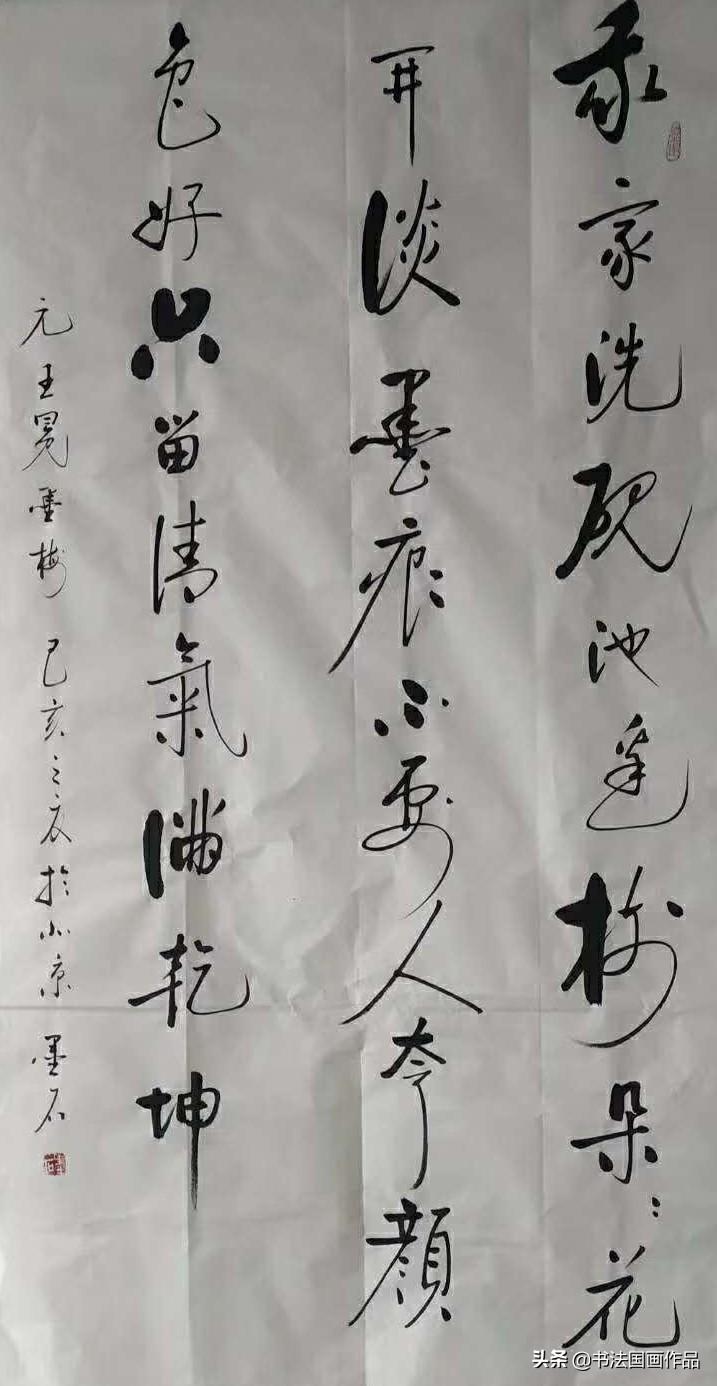 我家洗硯池邊樹朵朵花
开淡墨痕不要人夸顏
色好只留清氣滿乾坤
元王冕墨梅 己亥之夏於北京 墨石
头条 @书法国画作品